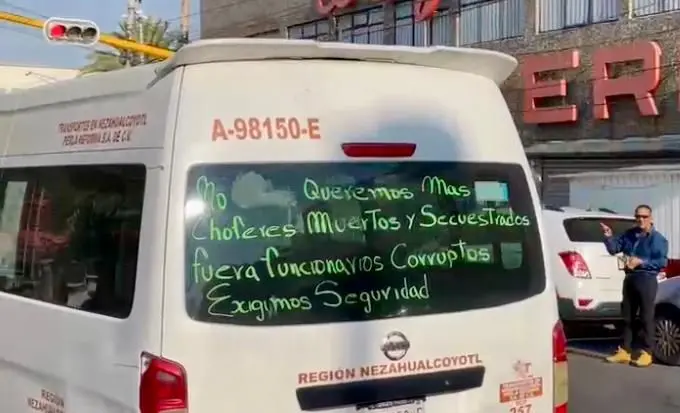 ER
A-98150-E
TRANSPORTES EN NEZAHUALCOYOTL
PERLA REFORMA S.A. DE C.V.
No Queremos Mas
Choferes Muertos y Secuestrados
fuera funcionarios Corruptos
Exigimos Seguridad
REGIÓN NEZAHUALCOYOTL
REGIÓN
NEZAHUALCOYOTL
257